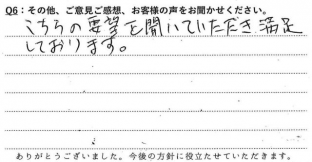 Q6：その他、ご意見ご感想、お客様の声をお聞かせください。
こちらの要望を聞いていただき満足
しております。
ありがとうございました。今後の方針に役立たせていただきます。